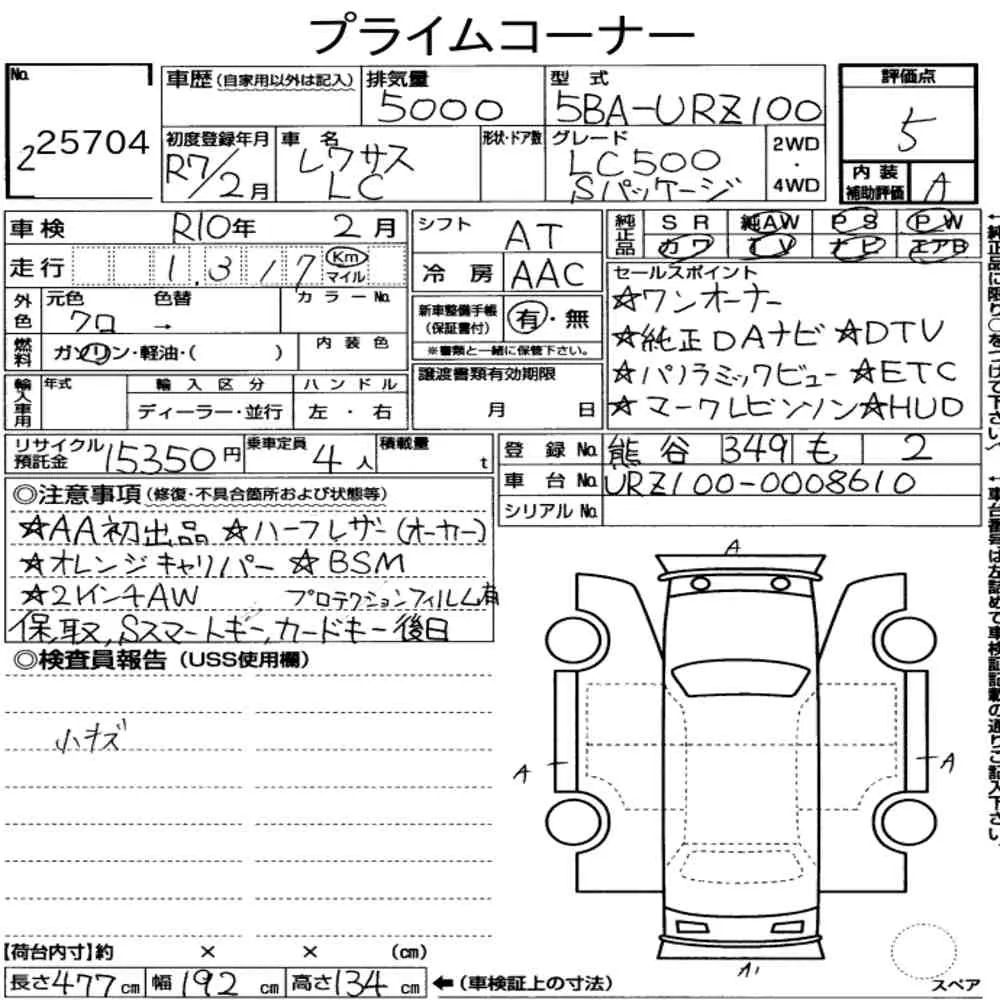 プライムコーナー
No. 225704
車歴 (自家用以外は記入)
排気量 5000
型式 5BA-URZ100
評価点 5
初度登録年月 R7/2月
車名 レクサス LC
形状・ドア数
グレード LC500 Sパッケージ
2WD・4WD
内装補助評価 A
車検 R10年 2月
シフト AT
純正品 SR 純AW PS PW
カワ TV ナビ エアB
走行 1,317 Km マイル
冷房 AAC
セールスポイント
☆ワンオーナー
☆純正DAナビ ☆DTV
☆パノラミックビュー ☆ETC
☆マークレビンソン ☆HUD
外色 元色 クロ → 色替 カラーNo.
新車整備手帳(保証書付) 有・無
※書類と一緒に保管下さい。
燃料 ガソリン・軽油・( ) 内装色
譲渡書類有効期限 月 日
輸入車用 年式 輸入区分 ハンドル
ディーラー・並行 左・右
リサイクル預託金 15350円 乗車定員 4人 積載量 t
登録No. 熊谷 349 も 2
車台No. URZ100-0008610
シリアルNo.
◎注意事項(修復・不具合箇所および状態等)
☆AA初出品 ☆ハーフレザー(オーカー)
☆オレンジキャリパー ☆BSM
☆21インチAW プロテクションフィルム有
保,取,Sスマートキー,カードキー後日
◎検査員報告(USS使用欄)
小キズ
A
A
A
A1
【荷台内寸】約 × × (cm)
長さ477cm 幅192cm 高さ134cm ←(車検証上の寸法)
スペア
←純正品に限り○をつけて下さい)
←車台番号は左詰めで車検証記載の通りご記入下さい。